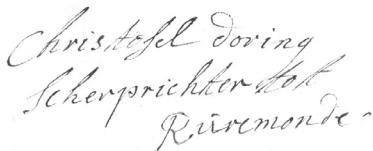 Christofel doring
scherprichter tot
Ruremonde